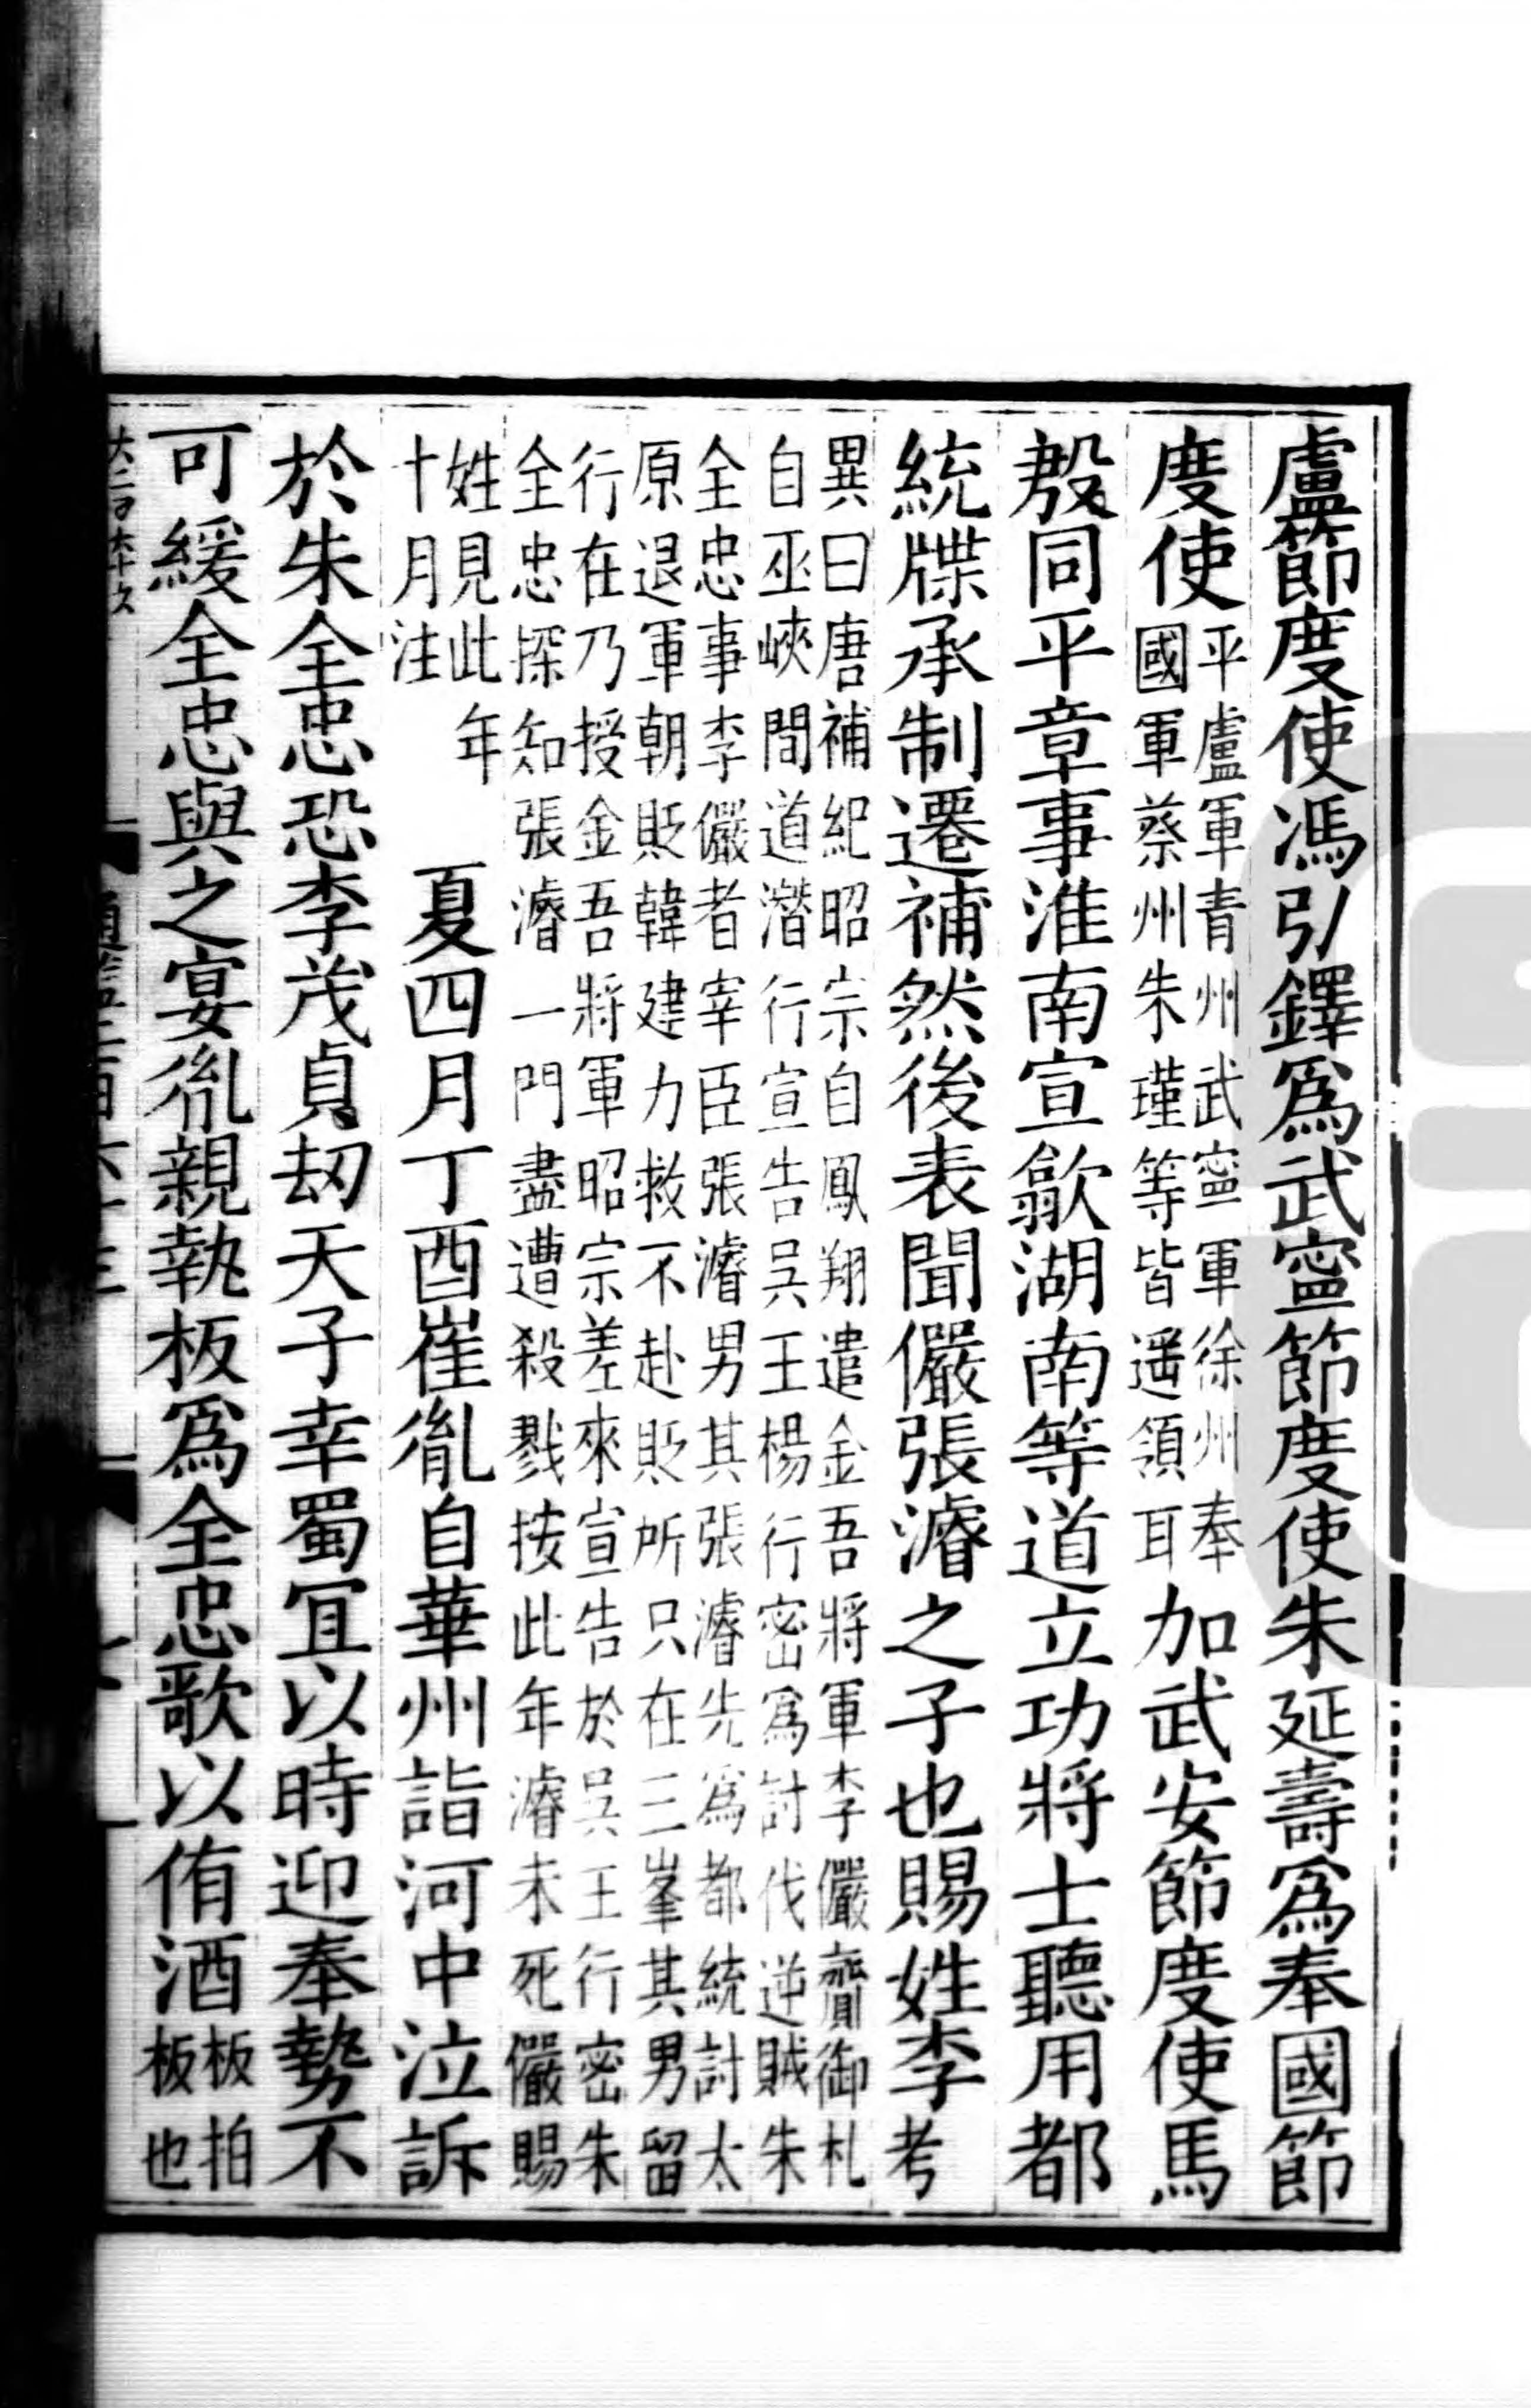 盧節度使馮弘鐸爲武寧節度使朱延壽爲奉國節
度使平盧軍青州武寧軍徐州奉國軍蔡州朱瑾等皆遥領耳加武安節度使馬
殷同平章事淮南宣歙湖南等道立功將士聽用都
統牒承制遷補然後表聞儼張濬之子也賜姓李考
異曰唐補紀昭宗自鳳翔遣金吾將軍李儼齎御札
自巫峽間道潛行宣告吳王楊行密爲討伐逆賊朱
全忠事李儼者宰臣張濬男其張濬先爲都統討太
原退軍朝貶韓建力救不赴貶所只在三峯其男留
行在乃授金吾將軍昭宗差來宣告於吳王行密朱
全忠探知張濬一門盡遭殺戮按此年濬未死儼賜
姓見此年
十月注
夏四月丁酉崔胤自華州詣河中泣訴
於朱全忠恐李茂貞刼天子幸蜀宜以時迎奉勢不
可緩全忠與之宴胤親執板爲全忠歌以侑酒板拍板也